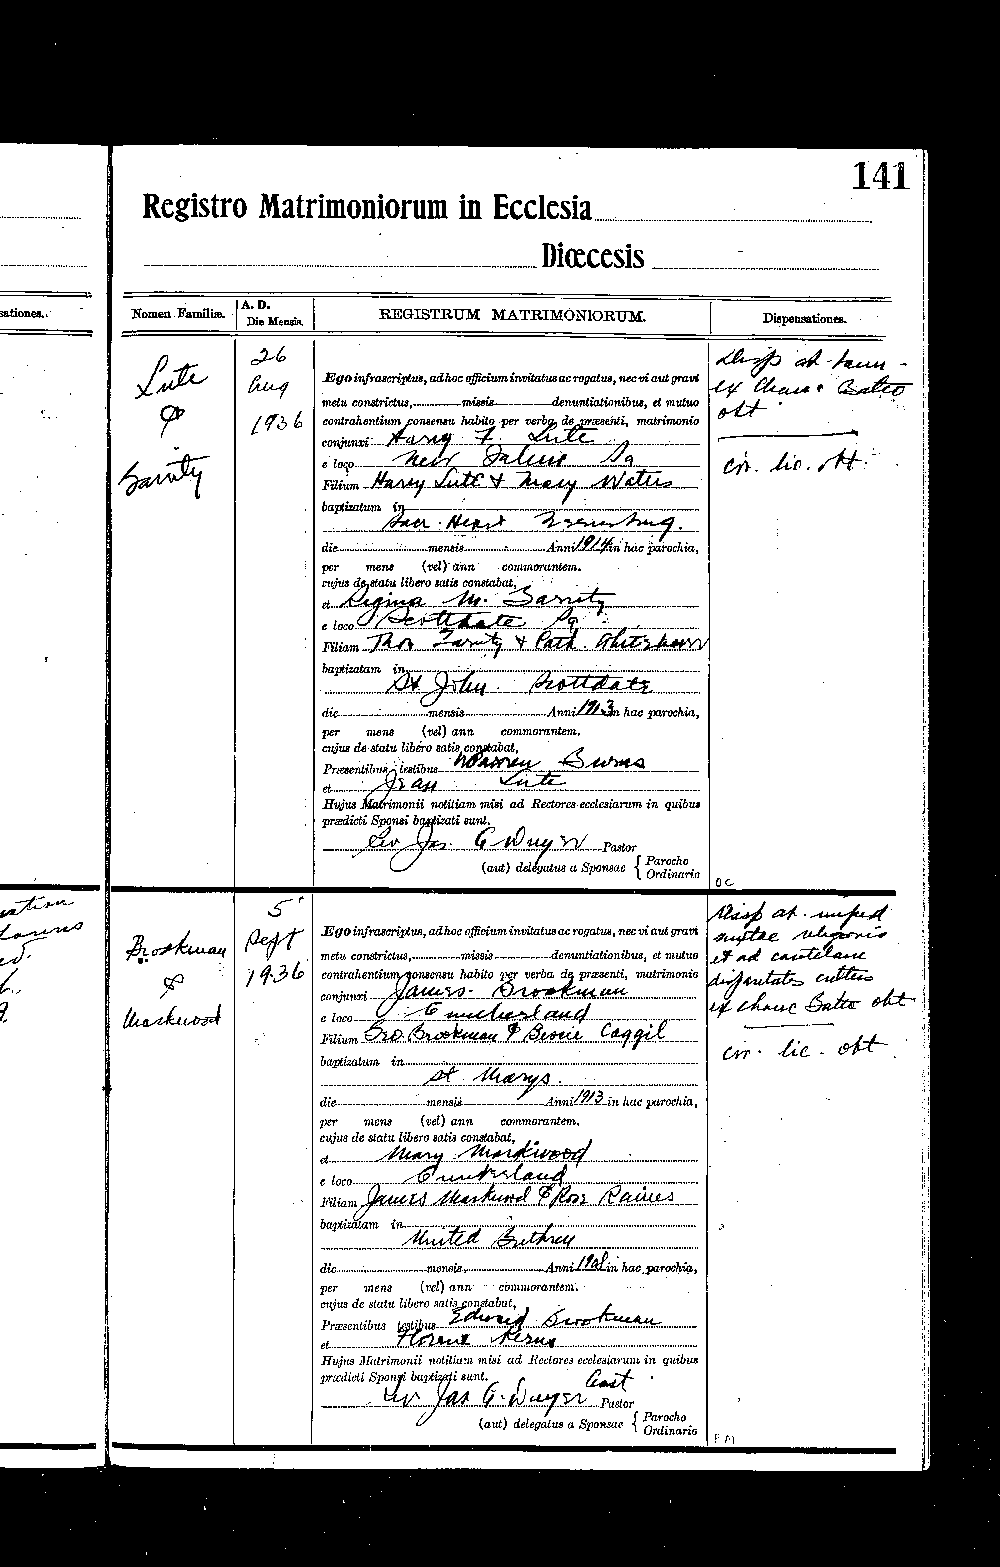 141
Registro Matrimoniorum in Ecclesia
Diœcesis
sationes.
Nomen Familiæ.
A. D.
Die Mensis.
REGISTRUM MATRIMONIORUM.
Dispensationes.
Lute
&
Garrity
26
Aug
1936
Ego infrascriptus, ad hoc officium invitatus ac rogatus, nec vi aut gravi
metu constrictus, missis denuntiationibus, et mutuo
contrahentium consensu habito per verba de præsenti, matrimonio
conjunxi Harry F. Lute
e loco New Salem Pa
Filium Harry Lute & Mary Waters
baptizatum in
Sacr. Heart Greensburg.
die mensis Anni 1914 in hac parochia,
per mens (vel) ann commorantem.
cujus de statu libero satis constabat,
et Regina M. Garrity
e loco Scottdale Pa
Filiam Thos Garrity & Cath.
baptizatam in
St John Scottdale
die mensis Anni 1913 in hac parochia,
per mens (vel) ann commorantem.
cujus de statu libero satis constabat,
Præsentibus testibus Warren Burns
et Jean Lute
Hujus Matrimonii notitiam misi ad Rectores ecclesiarum in quibus
prædicti Sponsi baptizati sunt.
Rev Jas. A Dwyer Pastor
(aut) delegatus a Sponsae { Parocho
Ordinario
Disp ab bann -
ex Chanc Balto
obt
civ. lic. obt.
O C
Brookman
&
Markwood
5
Sept
1936
Ego infrascriptus, ad hoc officium invitatus ac rogatus, nec vi aut gravi
metu constrictus, missis denuntiationibus, et mutuo
contrahentium consensu habito per verba de præsenti, matrimonio
conjunxi James Brookman
e loco Cumberland
Filium Geo Brookman & Caggil
baptizatum in
St Marys.
die mensis Anni 1913 in hac parochia,
per mens (vel) ann commorantem.
cujus de statu libero satis constabat,
et Mary Markwood
e loco Cumberland
Filiam James Markwood & Rose Raines
baptizatam in
United Brethren
die mensis Anni in hac parochia,
per mens (vel) ann commorantem.
cujus de statu libero satis constabat,
Præsentibus testibus Edward Brookman
et Florence Kerns
Hujus Matrimonii notitiam misi ad Rectores ecclesiarum in quibus
prædicti Sponsi baptizati sunt.
Asst
Rev Jas A. Dwyer Pastor
(aut) delegatus a Sponsae { Parocho
Ordinario
Disp ab imped
mixtae religionis
et ad cautelam
disparitatis cultus
ex chanc Balto obt
civ. lic. obt